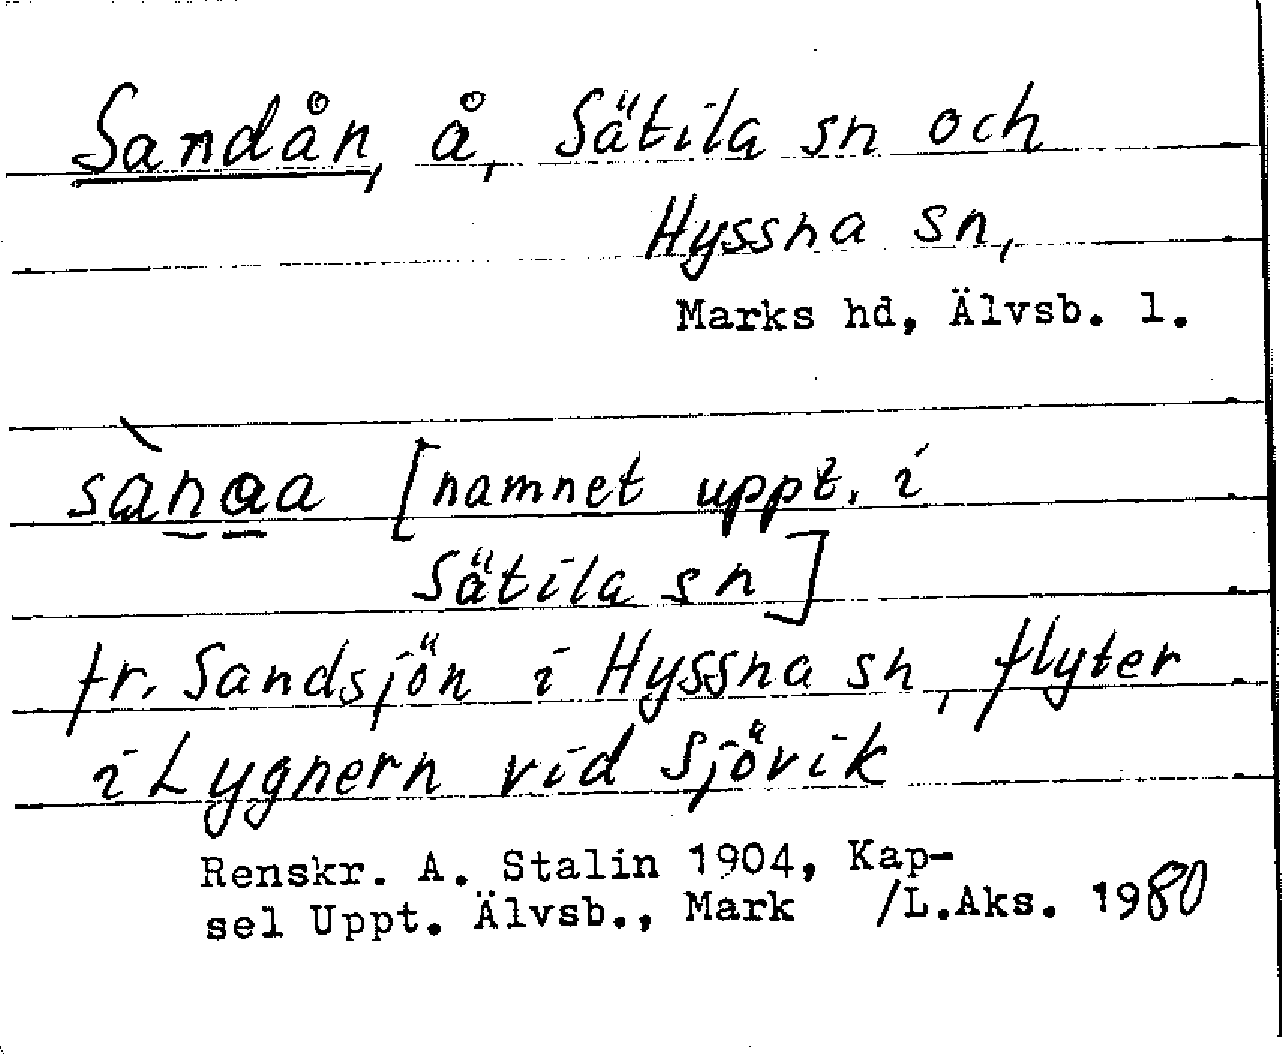 Sandån, å, Sätila sn och
Hyssna sn,
Marks hd, Älvsb. l.
sànaa [namnet uppt. i
Sätila sn]
fr. Sandsjön i Hyssna sn, flyter
i Lygnern vid Sjövik
Renskr. A. Stalin 1904, Kap-
sel Uppt. Älvsb., Mark /L.Aks. 1980